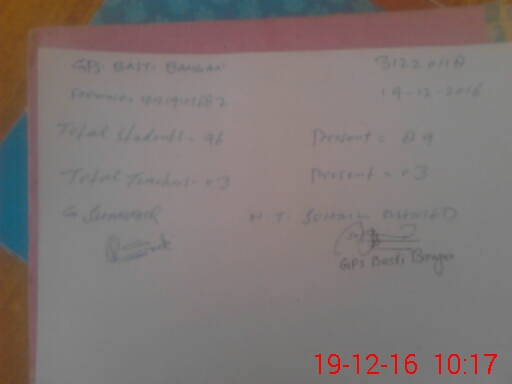 GPS BASTI BANGAN 31220118
19-12-2016
Total Students - 96 Present = 89
Total Teachers - 03 Present = 03
H. T. SOHAIL
GPS Basti Bangan
19-12-16 10:17